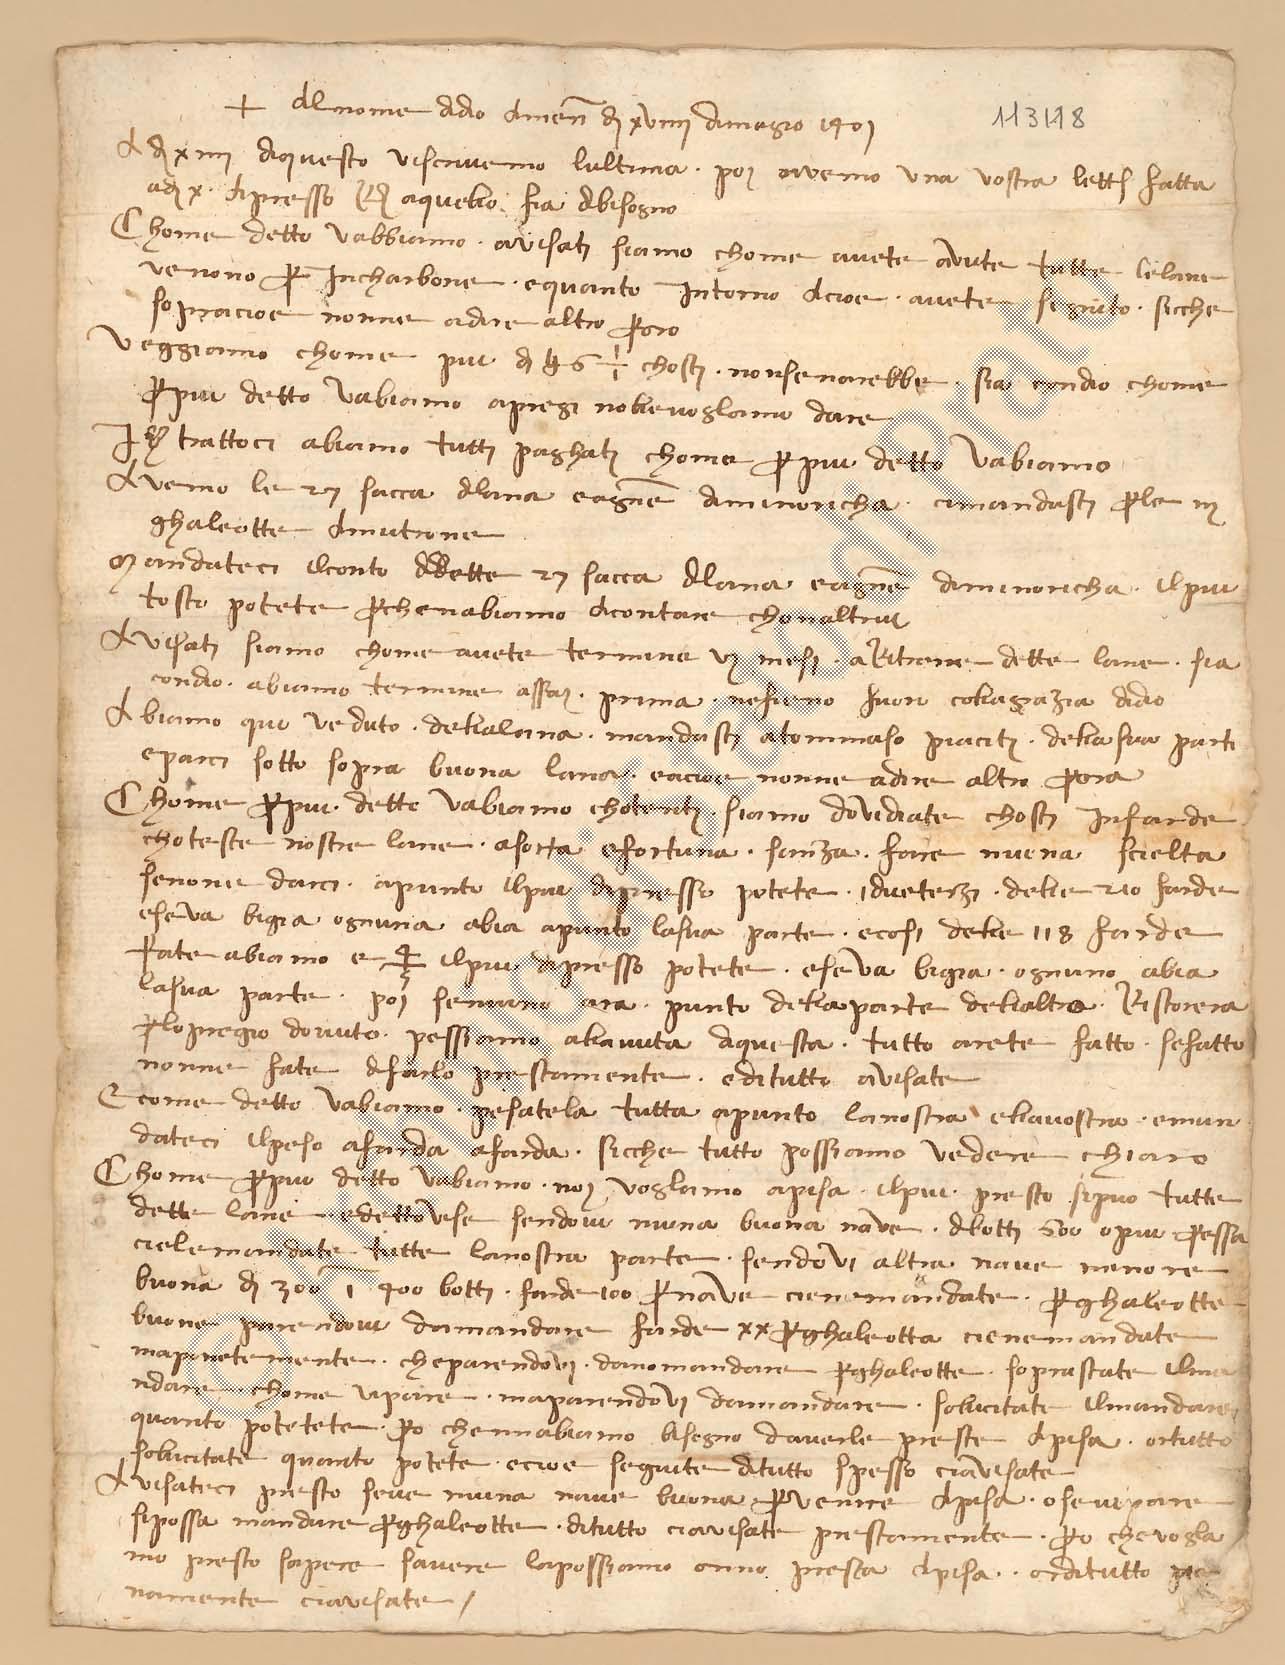 + Al nome di dio amen dì xviiii di magio 1401
113118
A dì xiiii di questo vi scrivemo l'ultima. poi avemo una vostra lettera fatta
a dì x. apresso rispondi a quello fia di bisogno
Chome detto v'abbiamo. avisati siamo chome avete avute tutte le lane
venono per Incharbone. e quanto intorno a cioe. avete seguito. sicche
sopra cioe nonne a dire altro per ora
Veggiamo chome piu di ₶ 6 ½ chosti. non se n'arebbe. sia con dio chome
per piu detto v'abiamo a pregi no lle voglamo dare
trattoci abiamo tutti paghati chome per piu detto v'abiamo
Avemo le 27 sacca di lana e agnine di minoricha. ci mandasti per le iii
ghaleotte
Mandateci il conto di dette 27 sacca di lana e agnine di minoricha. il piu
tosto potete per che n'abiamo a contare chon altrui
Avisati siamo chome avete termine vi mesi. a dette lane. sia
con dio. abiamo termine assai. prima ne fieno fuori colla grazia di dio
Abiamo qui veduto. della lana. mandasti a tommaso piaciti. della sua parti
e parci sotto sopra buona lana. e a cioe nonne a dire altro per ora
Chome per piu detto v'abiamo chotenti siamo dovidiate chosti in farde
choteste nostre lane. a sorta e fortuna. sanza. fare niuna scielta
se none darci. apunto il piu di presso potete. i due terzi. delle 210 farde
e se v'a bigia ognuna abia apunto la sua parte. e cosi delle 118 farde
fate abiamo e il piu apresso potete. e se v'a bigia. ognuno abia
la sua parte. poi se niuno ara. punto della parte dell'altro. ristorera
per lo pregio dovuto. pessiamo alla avuta di questa. tutto arete fatto. se fatto
nonne fate di farlo prestamente. e di tutto avisate
E come detto v'abiamo. pesatela tutta apunto la nostra e lla vostra. e man
dateci il peso a farda a farda. sicche tutto possiamo vedere chiaro
Chome per piu detto v'abiamo. noi voglamo a pisa. il piu presto si puo tutte
dette lane e dettovi se sendovi niuna buona nave. di botti 500 o piu per essa
cielemandate tutte la nostra parte. sendovi altra nave menore
buona di 300 i 400 botti. farde 100 per nave cienemandate. per ghaleotte
buone parendovi da mandare farde xx per ghaleotta cienemandate
che parendovi. da no mandare per ghaleotte. soprastate il ma
ndare chome vi pare. ma parendovi da mandare. solicitate il mandare
quanto potetete. pero che n'abiamo bisogno d'averle preste a pisa. or tutto
solicitate quanto potete. e cioe seguite di tutto spesso ci avisate
Avisateci presto se v'e niuna nave buona per venire a pisa. o se vi pare
si possa mandare per ghaleotte. di tutto ci avisate prestamente. pero che vogla
mo presto sapere s'avere la possiamo o nno presta a pisa. or di tutto pie
namente ci avisate /